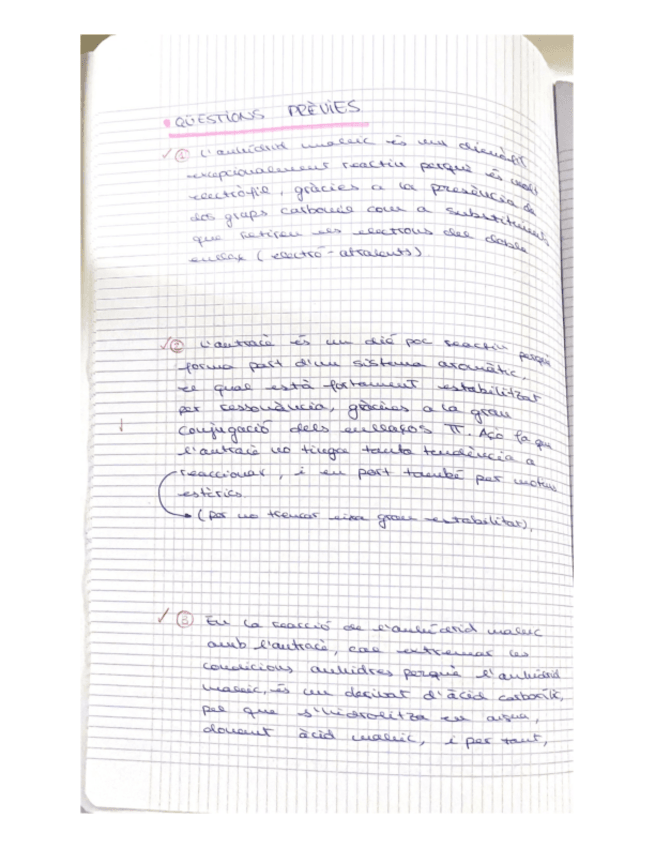 QÜESTIONS PRÈVIES
① L'anhídrid maleic és un dienòfil
excepcionalment reactiu perquè és molt
electròfil, gràcies a la presència de
dos grups carbonil com a substituents
que retiren els electrons del doble
enllaç (electró-atraients).
② L'antracè és un dié poc reactiu perquè
forma part d'un sistema aromàtic,
el qual està fortament estabilitzat
per ressonància, gràcies a la gran
conjugació dels enllaços π. Açò fa que
l'antracè no tinga tanta tendència a
reaccionar, i en part també per motius
estèrics.
(per no trencar eixa gran estabilitat),
③ En la reacció de l'anhídrid maleic
amb l'antracè, cal extremar les
condicions anhidres perquè l'anhídrid
maleic, és un derivat d'àcid carboxílic,
pel que s'hidrolitza en aigua,
donant àcid maleic, i per tant,